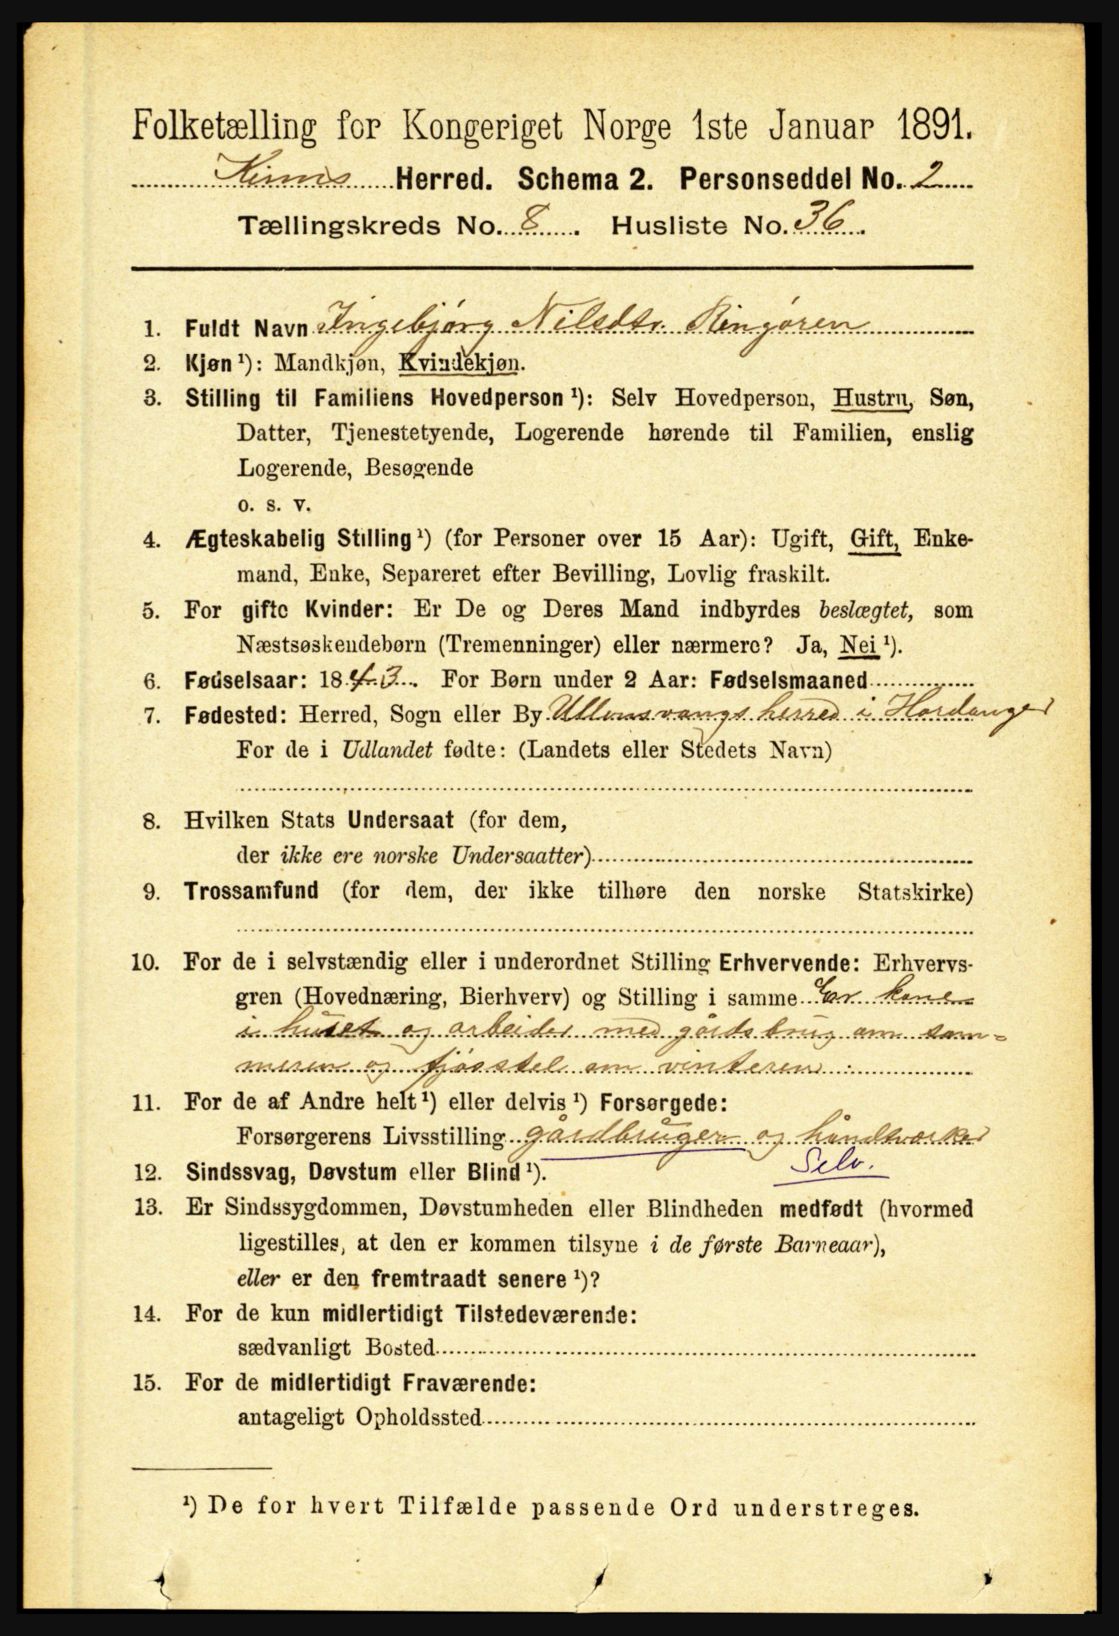 Folketælling for Kongeriget Norge 1ste Januar 1891.
Kinns Herred. Schema 2. Personseddel No. 2
Tællingskreds No. 8. Husliste No. 36.
1. Fuldt Navn Ingebjørg Nilsdtr. Ringøren
2. Kjøn ¹): Mandkjøn, Kvindekjøn.
3. Stilling til Familiens Hovedperson ¹): Selv Hovedperson, Hustru, Søn,
Datter, Tjenestetyende, Logerende hørende til Familien, enslig
Logerende, Besøgende
o. s. v.
4. Ægteskabelig Stilling ¹) (for Personer over 15 Aar): Ugift, Gift, Enke-
mand, Enke, Separeret efter Bevilling, Lovlig fraskilt.
5. For gifte Kvinder: Er De og Deres Mand indbyrdes beslægtet, som
Næstsøskendebørn (Tremenninger) eller nærmere? Ja, Nei ¹).
6. Fødselsaar: 1843. For Børn under 2 Aar: Fødselsmaaned
7. Fødested: Herred, Sogn eller By Ullensvangs herred i Hardanger
For de i Udlandet fødte: (Landets eller Stedets Navn)
8. Hvilken Stats Undersaat (for dem,
der ikke ere norske Undersaatter)
9. Trossamfund (for dem, der ikke tilhøre den norske Statskirke)
10. For de i selvstændig eller i underordnet Stilling Erhvervende: Erhvervs-
gren (Hovednæring, Bierhverv) og Stilling i samme Er kone
i huset og arbeider med gårdsbrug om som-
meren og fjøsstel om vinteren.
11. For de af Andre helt ¹) eller delvis ¹) Forsørgede:
Forsørgerens Livsstilling gårdbruger og håndværker
Selv.
12. Sindssvag, Døvstum eller Blind ¹).
13. Er Sindssygdommen, Døvstumheden eller Blindheden medfødt (hvormed
ligestilles, at den er kommen tilsyne i de første Barneaar),
eller er den fremtraadt senere ¹)?
14. For de kun midlertidigt Tilstedeværende:
sædvanligt Bosted
15. For de midlertidigt Fraværende:
antageligt Opholdssted
¹) De for hvert Tilfælde passende Ord understreges.